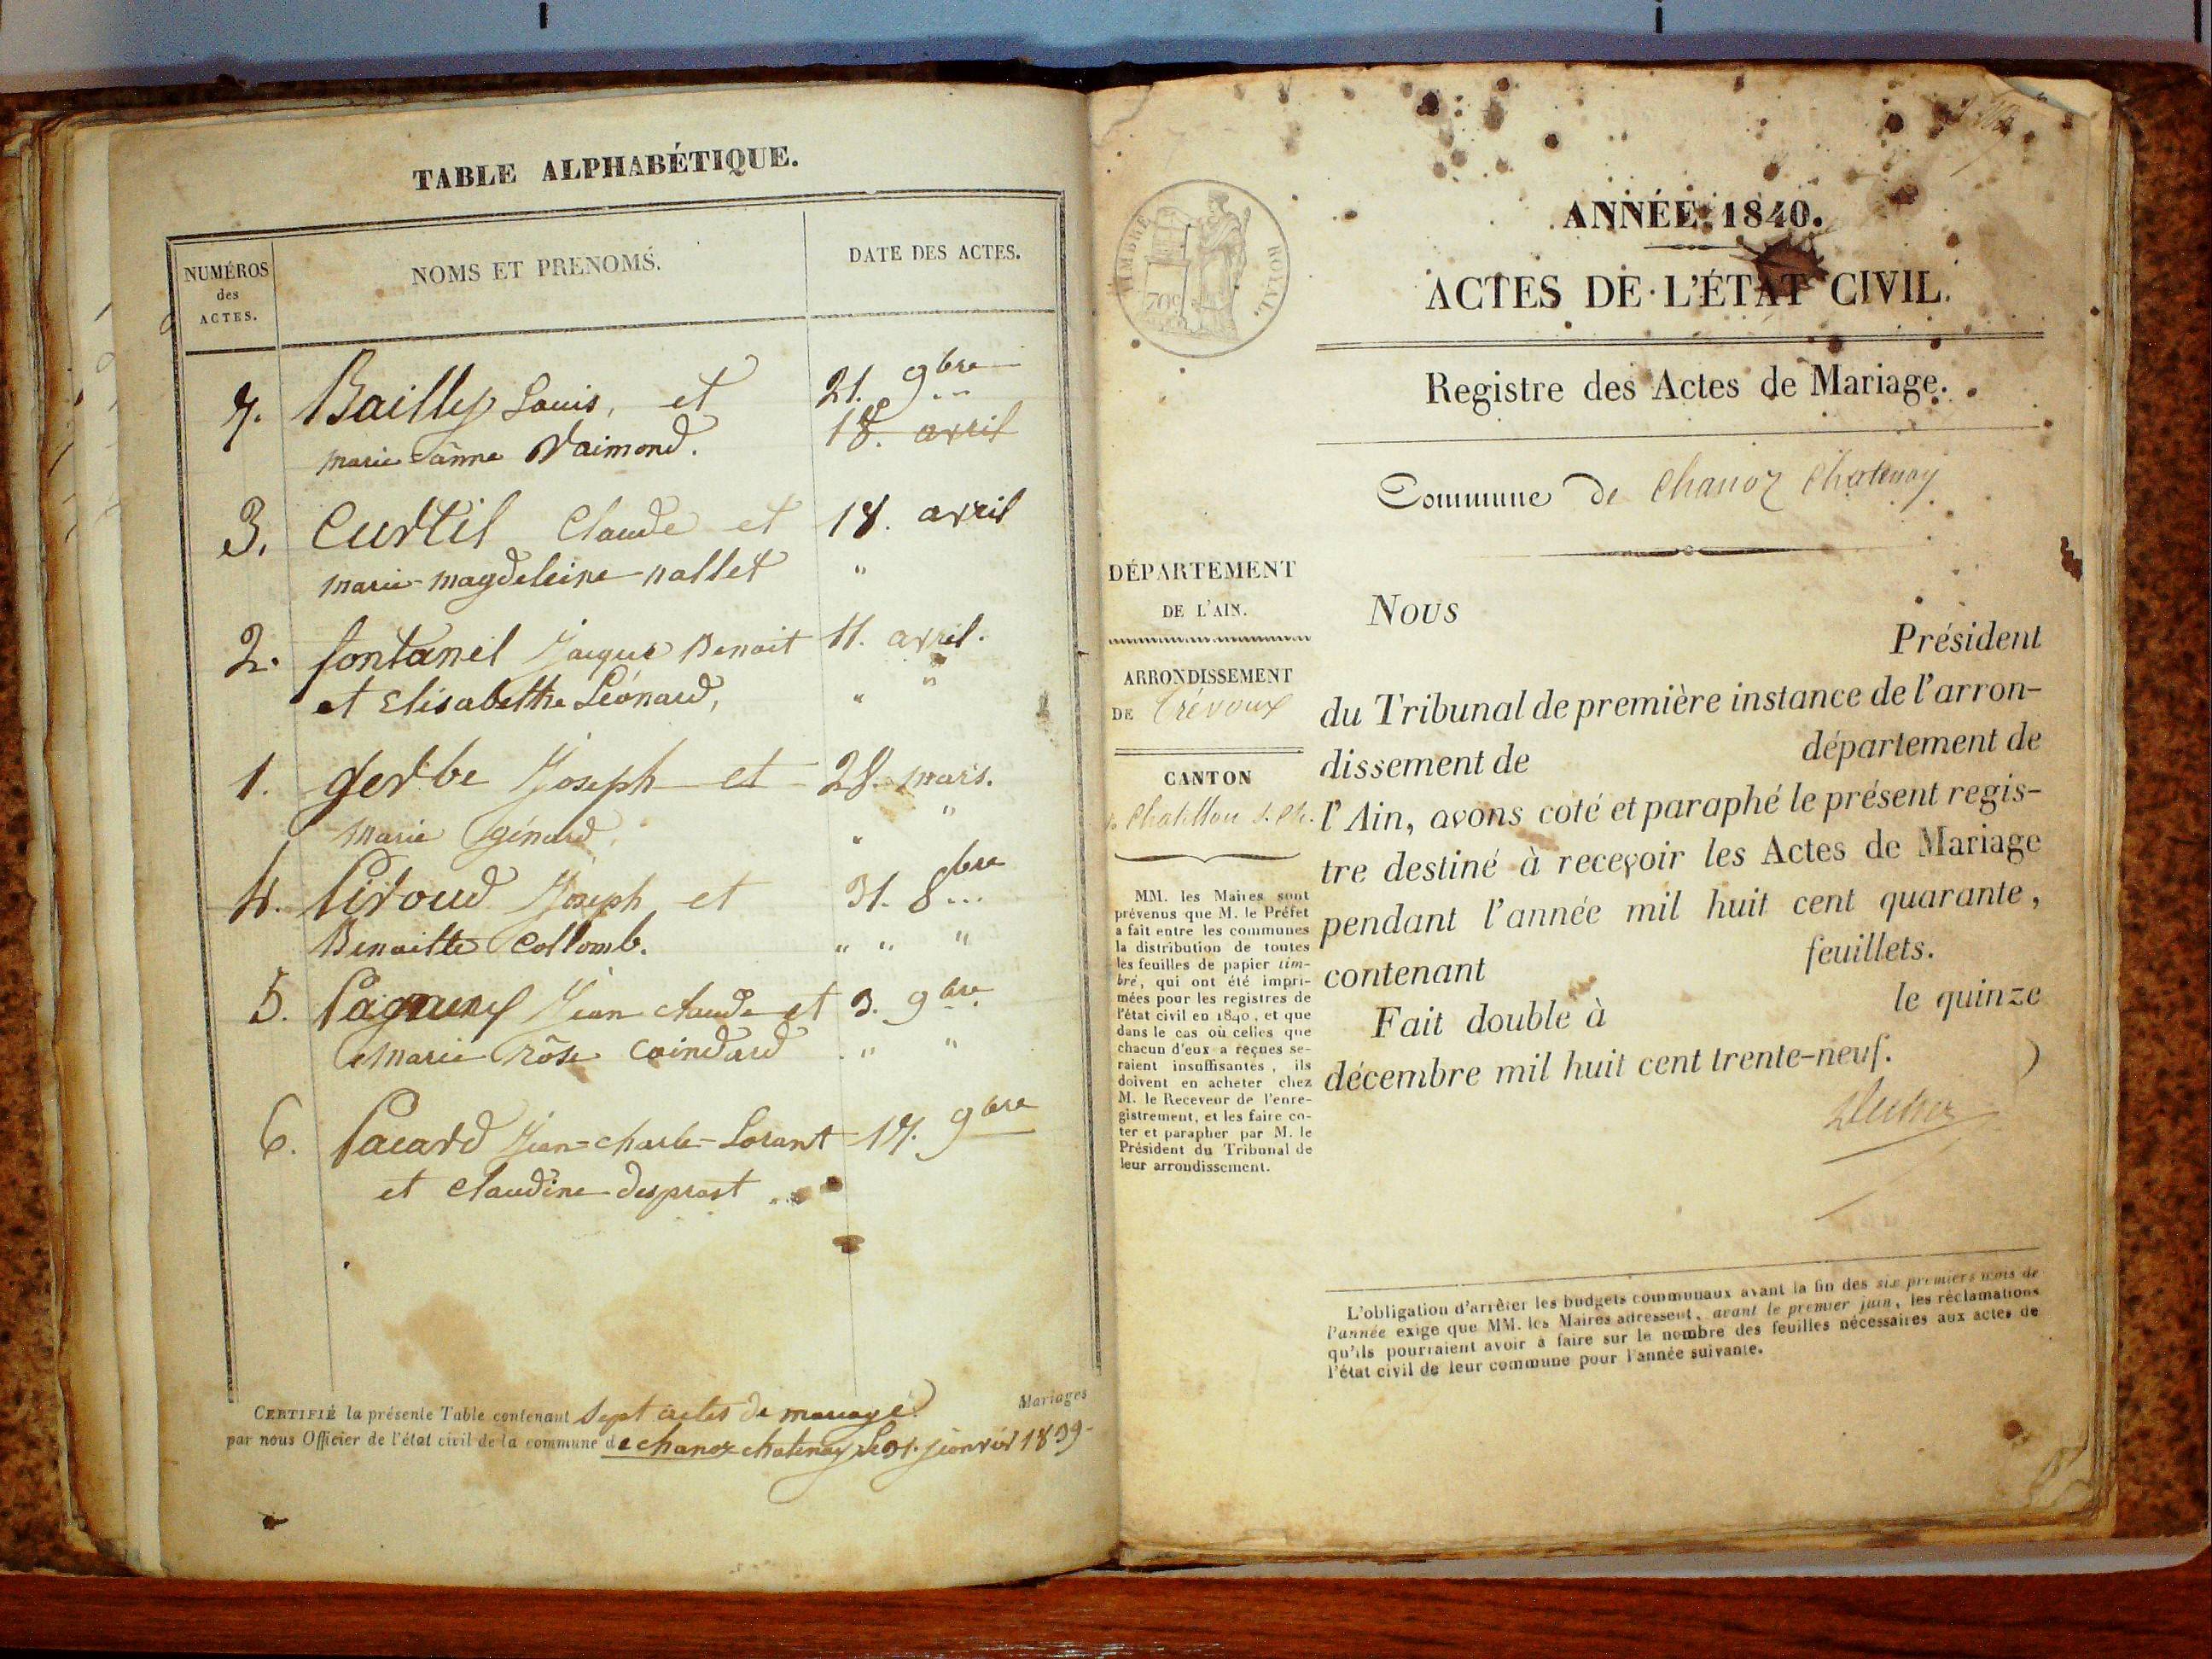 TABLE ALPHABÉTIQUE.
NUMÉROS
des
ACTES.
NOMS ET PRENOMS.
DATE DES ACTES.
7. Bailly Louis, et 21. 9bre
marie-anne Raimond. 18. avril
3. Curtil Claude et 18. avril
marie-magdeleine nallet "
2. fontanel Jacque Benoit 11. avril.
et Elisabethe Léonard, " "
1. gerbe Joseph et 28. mars.
marie génard " "
4. Piroud Joseph et 31. 8bre
Benoitte Collomb. " " "
5. Jean claude et 3. 9bre
marie rôse Coindard " "
6. Pacard Jean-charle-Lorant 17. 9bre
et Claudine desprast
CERTIFIÉ la présente Table contenant Sept actes de mariage Mariages
par nous Officier de l'état civil de la commune de chanoz chatenay le 31. janvier 1839-
TIMBRE ROYAL.
70c
ANNÉE 1840.
ACTES DE L'ÉTAT CIVIL.
Registre des Actes de Mariage.
Commune de Chanoz Chatenay
DÉPARTEMENT
DE L'AIN.
ARRONDISSEMENT
DE Trévoux
CANTON
de Chatillon s. Ch.
MM. les Maires sont
prévenus que M. le Préfet
a fait entre les communes
la distribution de toutes
les feuilles de papier tim-
bré, qui ont été impri-
mées pour les registres de
l'état civil en 1840, et que
dans le cas où celles que
chacun d'eux a reçues se-
raient insuffisantes, ils
doivent en acheter chez
M. le Receveur de l'enre-
gistrement, et les faire co-
ter et parapher par M. le
Président du Tribunal de
leur arrondissement.
Nous
Président
du Tribunal de première instance de l'arron-
dissement de département de
l'Ain, avons coté et paraphé le présent regis-
tre destiné à recevoir les Actes de Mariage
pendant l'année mil huit cent quarante,
contenant feuillets.
Fait double à le quinze
décembre mil huit cent trente-neuf.
L'obligation d'arrêter les budgets communaux avant la fin des six premiers mois de
l'année exige que MM. les Maires adressent, avant le premier juin, les réclamations
qu'ils pourraient avoir à faire sur le nombre des feuilles nécessaires aux actes de
l'état civil de leur commune pour l'année suivante.